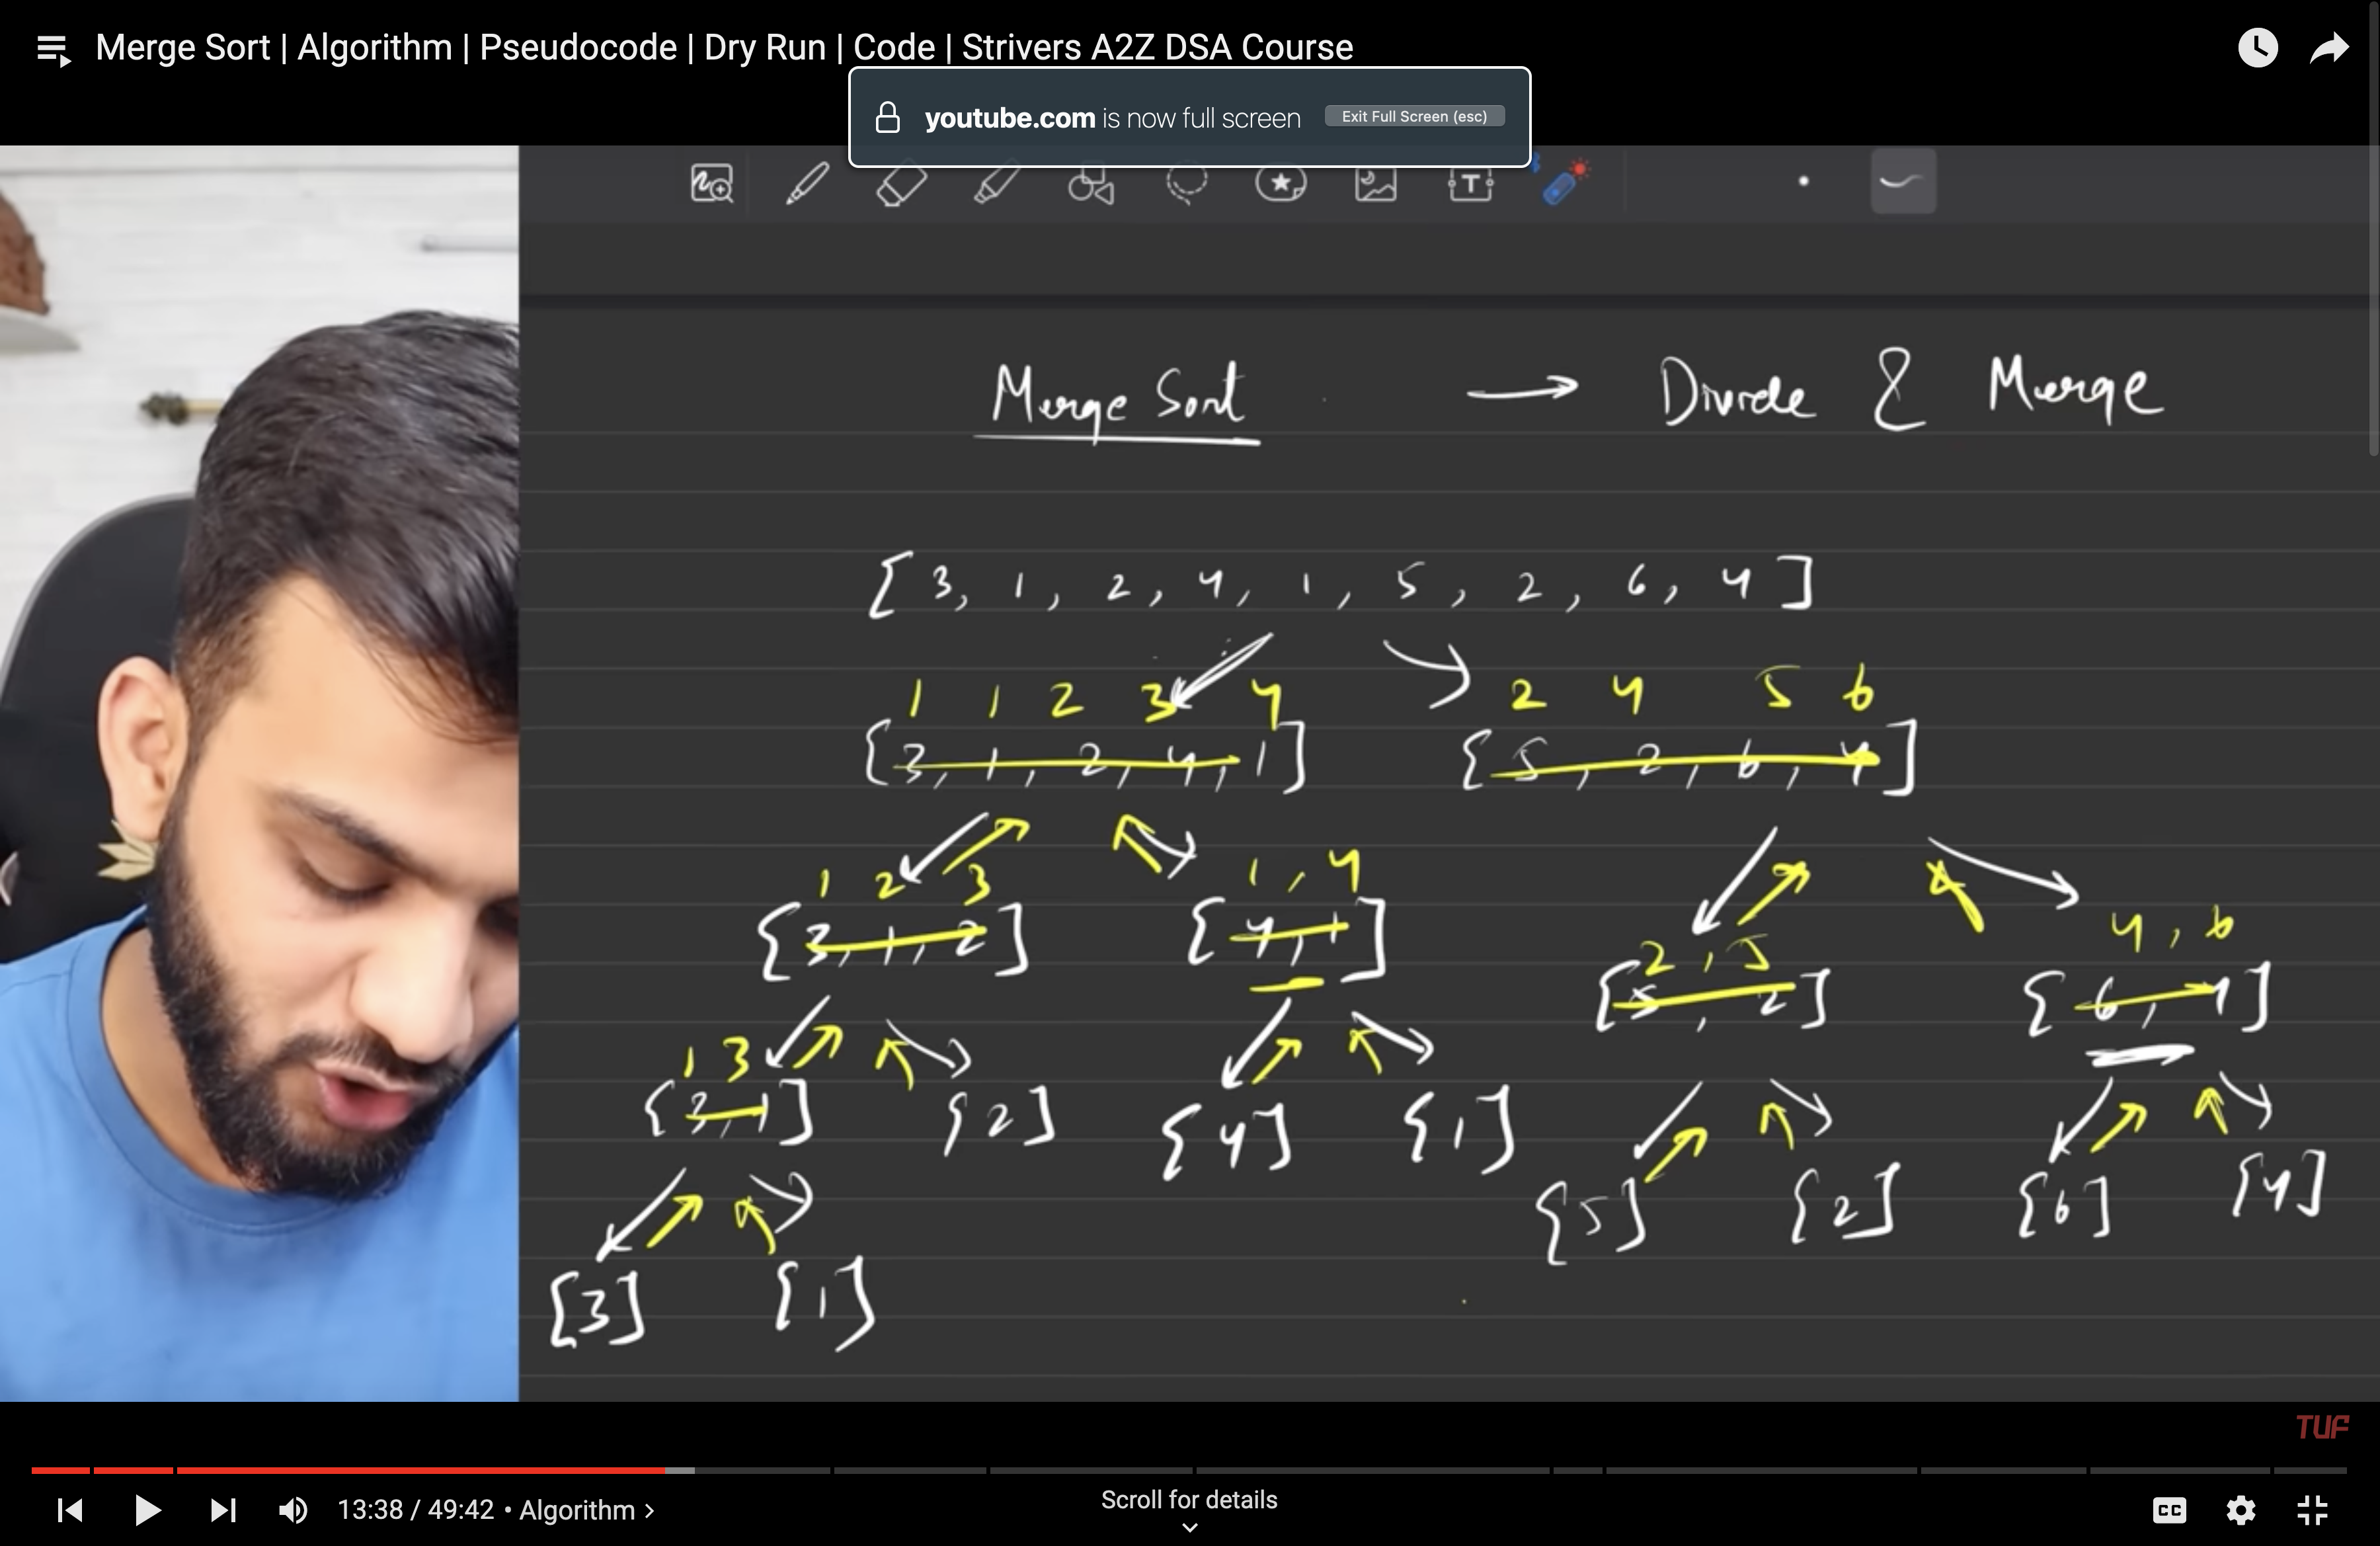 Merge Sort | Algorithm | Pseudocode | Dry Run | Code | Strivers A2Z DSA Course
youtube.com is now full screen Exit Full Screen (esc)
T
Merge Sort → Divide & Merge
[ 3, 1, 2, 4, 1, 5, 2, 6, 4 ]
1 1 2 3 4 2 4 5 6
[3, 1, 2, 4, 1] [5, 2, 6, 4]
1 2 3 1, 4
[3, 1, 2] [4, 1]
2, 5 4, 6
[5, 2] [6, 4]
1 3
[3, 1] [2] [4] [1]
[5] [2] [6] [4]
[3] [1]
TUF
13:38 / 49:42 • Algorithm >
Scroll for details
CC